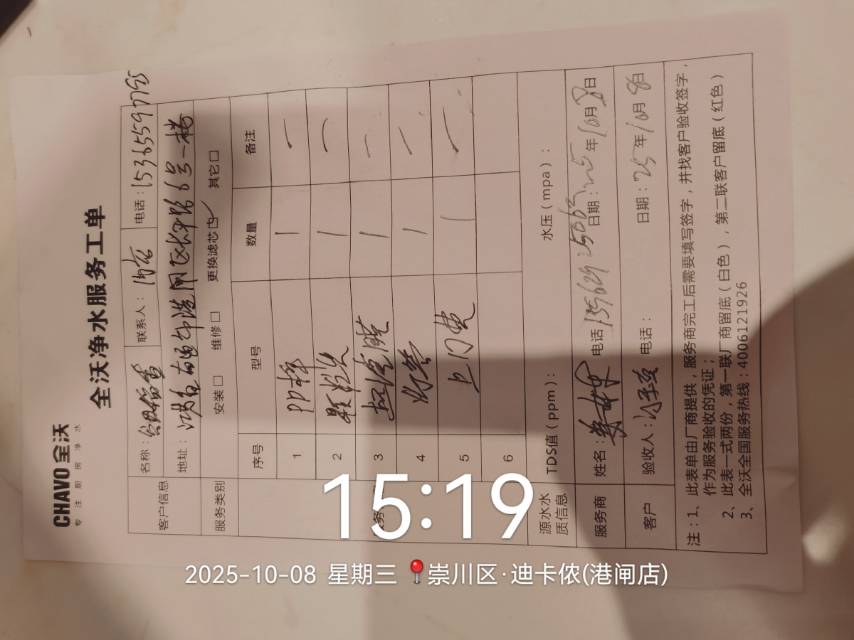 CHAVO 全沃
专注厨房净水
全沃净水服务工单
客户信息
名称: 联系人: 电话: 15365597795
地址: 港闸区 6号一楼
服务类别 安装□ 维修□ 更换滤芯☑ 其它□
序号 型号 数量 备注
1 PP棉 1 一
2 颗粒炭 1 一
3 超滤膜 1 一
4 1 一
5 上门费 1 一
6
源水水质信息 TDS值(ppm): 水压(mpa):
服务商 姓名: 电话 日期: 25年10月8日
客户 验收人: 电话: 日期: 25年10月8日
注:1、此表单由厂商提供,服务商完工后需要填写签字,并找客户验收签字,
作为服务验收的凭证;
2、此表一式两份,第一联厂商留底(白色),第二联客户留底(红色)
3、全沃全国服务热线:4006121926
15:19
2025-10-08 星期三 📍崇川区·迪卡侬(港闸店)